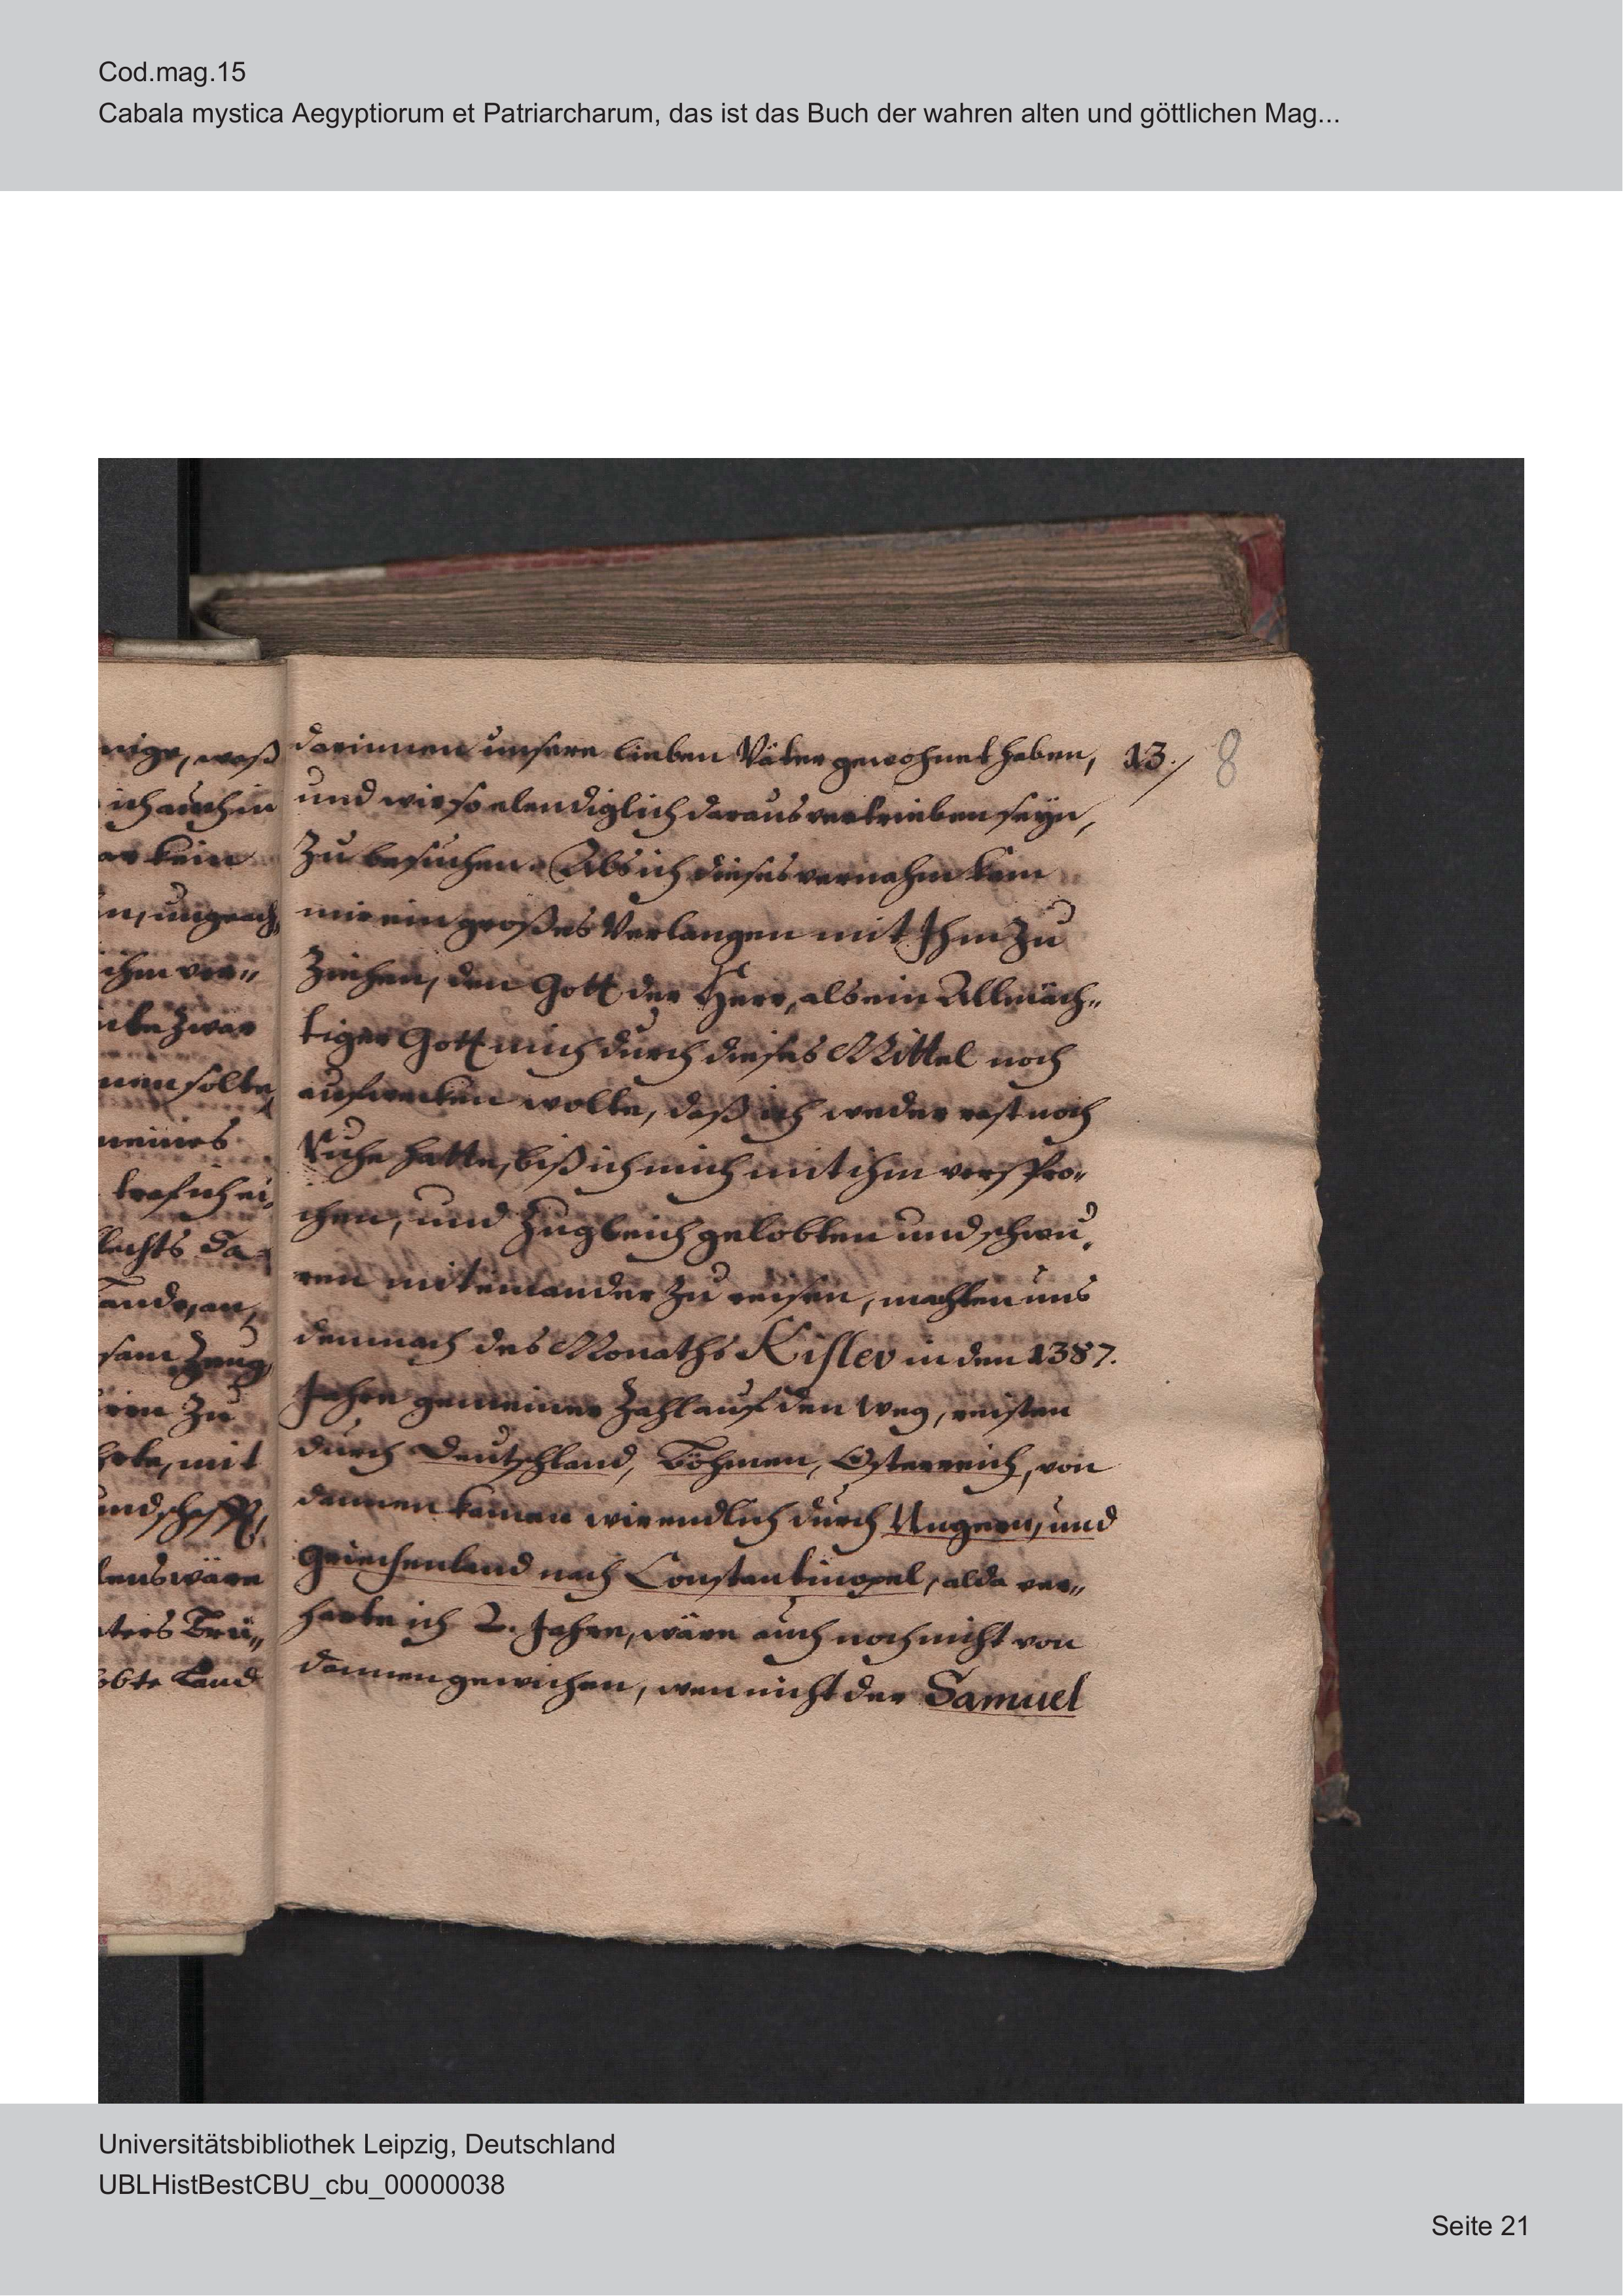 Cod.mag.15
Cabala mystica Aegyptiorum et Patriarcharum, das ist das Buch der wahren alten und göttlichen Mag...
nige, waß
ich auch in
ar kein
en, ungeach,
ihm ver„
zwar
nen solte,
meines
traf ich ei,
lechts Da„
Lande, an,
sam Zeug,
ren Zu
mit
undschafft,
lens wäre
ters Brü„
obte Land
darinnen unsere lieben Väter gewohnet haben, 13./ 8
und wir so elendiglich daraus vertrieben seyn,
Zu besuchen. Als ich dieses vernahm kam
mir ein großes Verlangen mit Ihm Zu
Ziehen, den Gott der Herr, als ein Allmäch„
tiger Gott mich durch dieses Mittel noch
aufwecken wolte, daß ich weder rast noch
Ruhe hatte, biß ich mich mit ihm verspro„
chen, und Zugleich gelobten und schwu,
ren miteinander Zu reisen, machten uns
demnach des Monaths Kislev in den 1387.
Jahre gemeiner Zahl auf den weg, reisten
durch Deutschland, Böhmen, Österreich, von
dannen kamen wir endlich durch Ungern, und
Griechenland nach Constantinopel, alda ver„
harte ich 2. Jahre, wäre auch noch nicht von
dannen gewichen, wen nicht der Samuel
Universitätsbibliothek Leipzig, Deutschland
UBLHistBestCBU_cbu_00000038
Seite 21